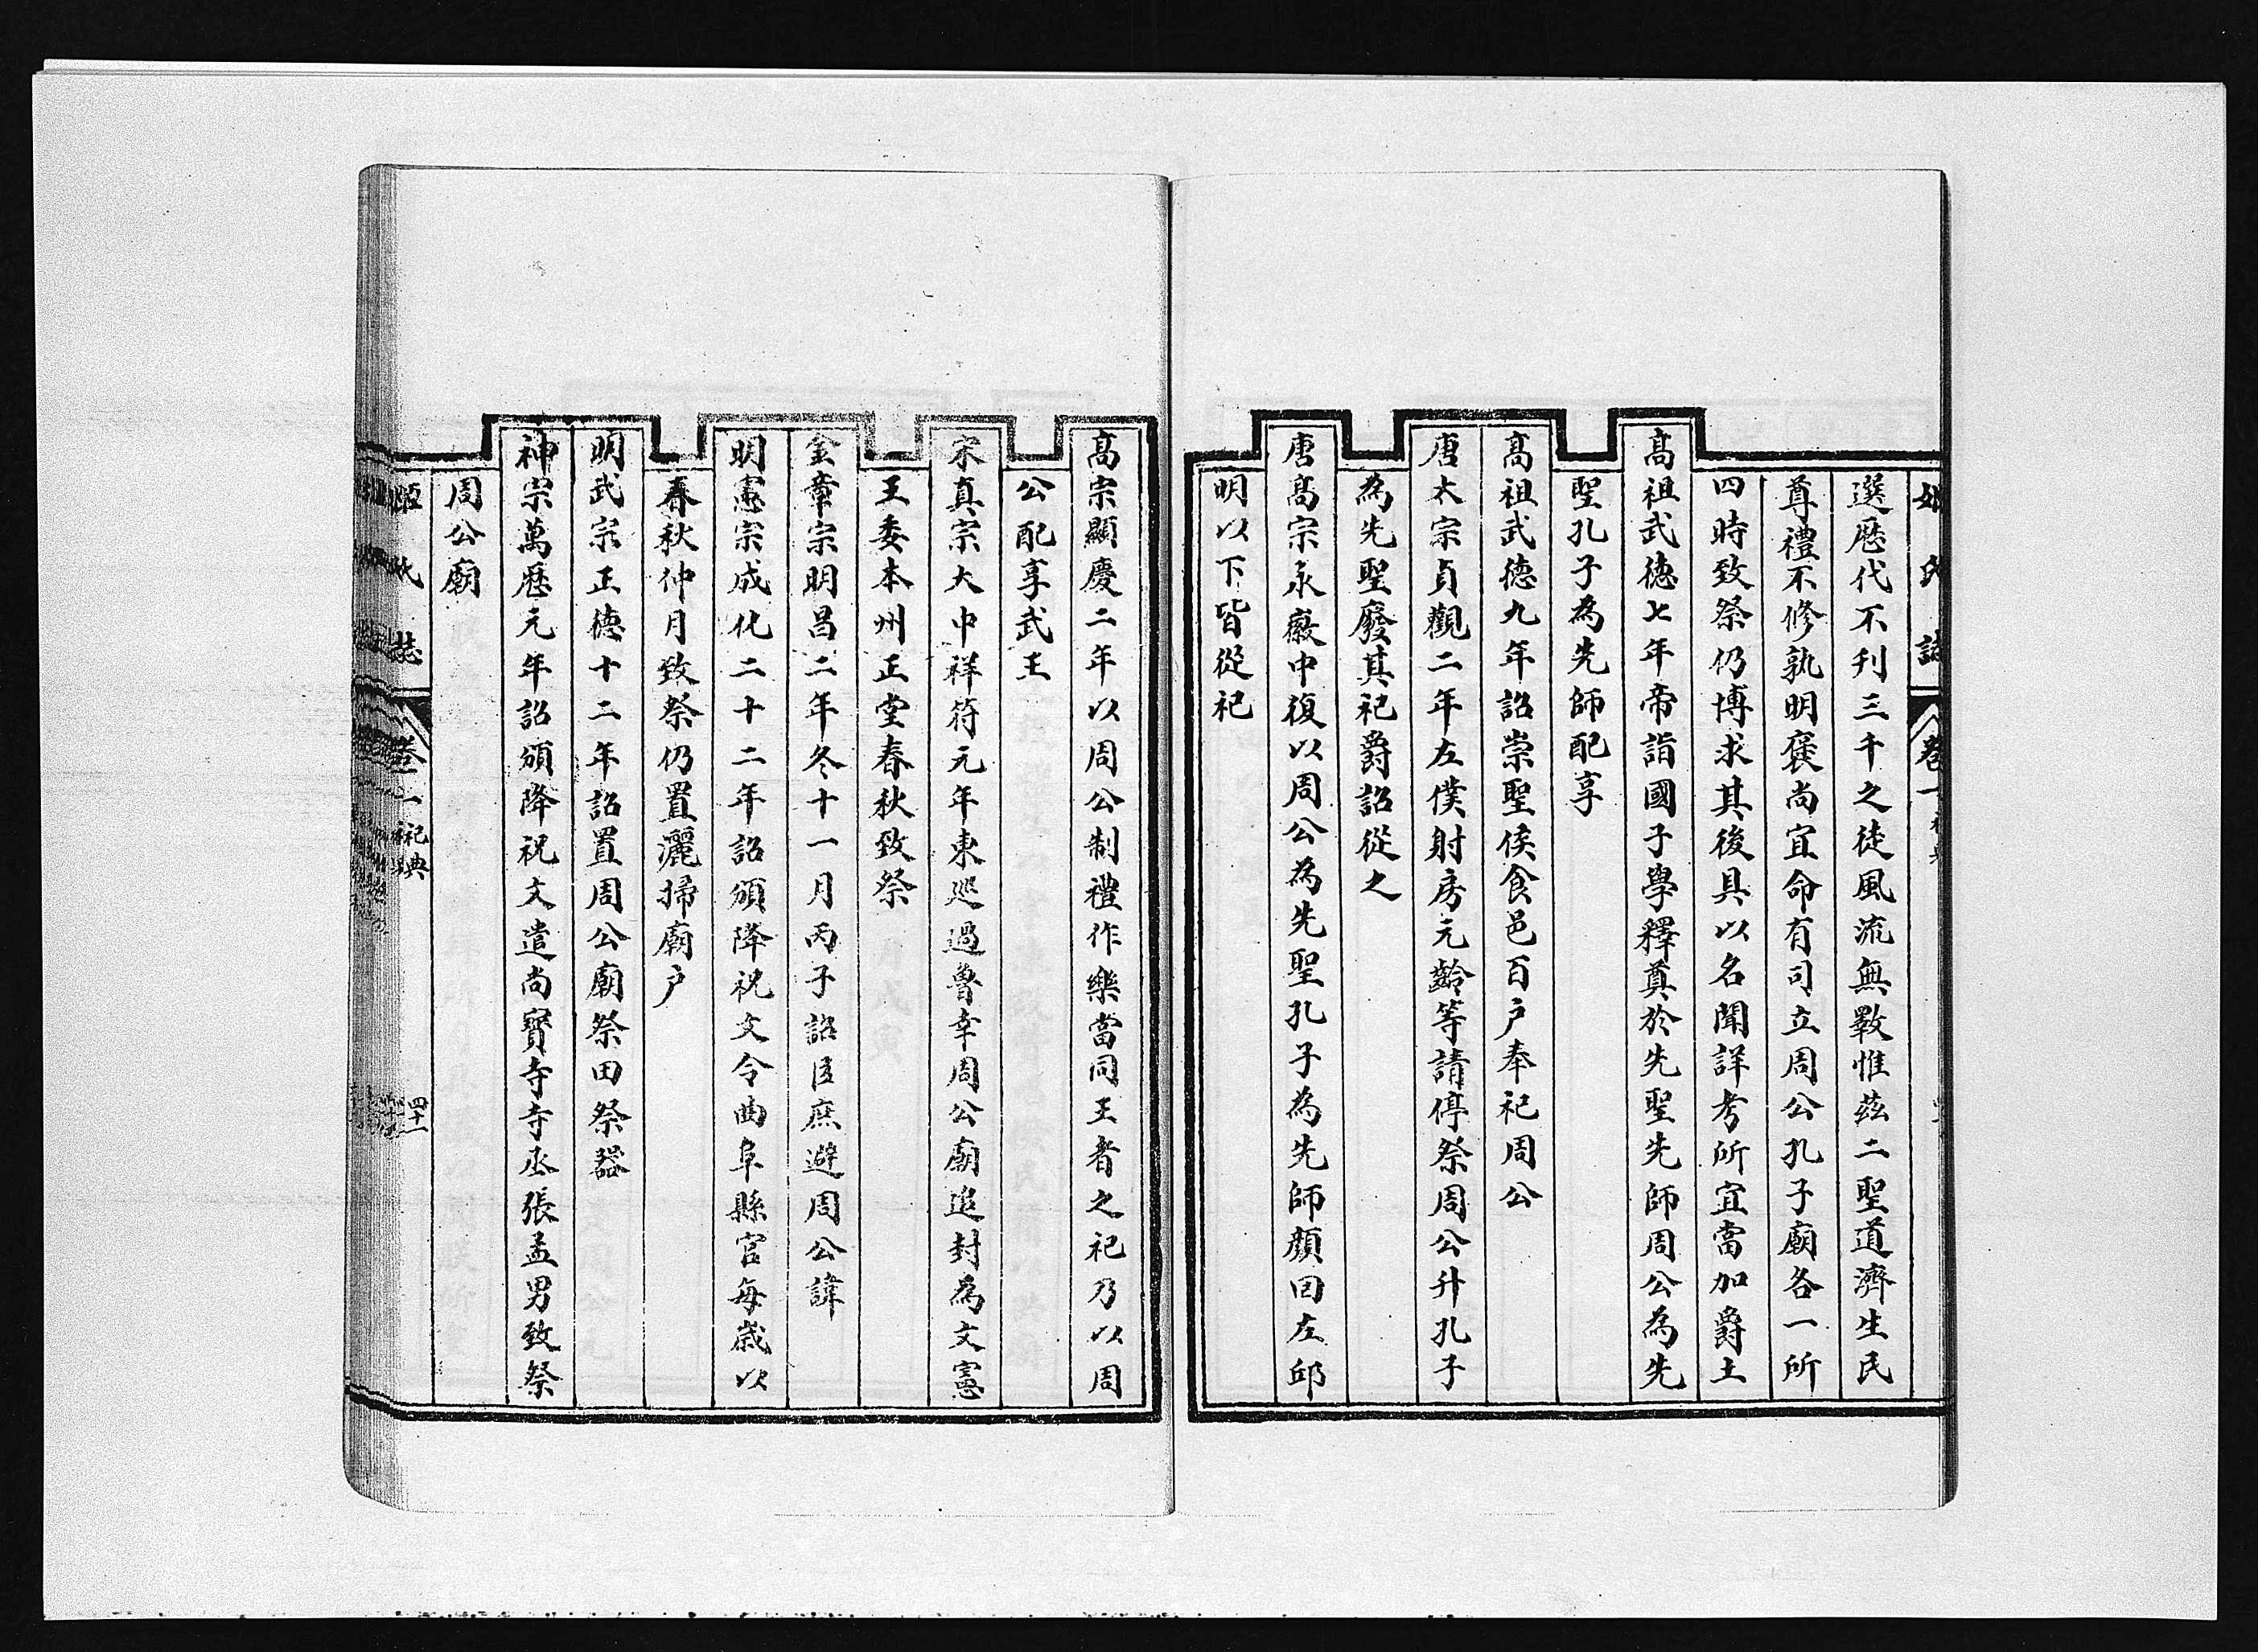 姬氏誌 卷一
選歷代不刋三千之徒風流無斁惟茲二聖道濟生民
尊禮不修孰明褒尚宜命有司立周公孔子廟各一所
四時致祭仍博求其後具以名聞詳考所宜當加爵土
高祖武德七年帝詣國子學釋奠於先聖先師周公為先
聖孔子為先師配享
高祖武德九年詔崇聖侯食邑百户奉祀周公
唐太宗貞觀二年左僕射房元齡等請停祭周公升孔子
為先聖廢其祀爵詔從之
唐高宗永徽中復以周公為先聖孔子為先師顏回左邱
明以下皆從祀
高宗顯慶二年以周公制禮作樂當同王者之祀乃以周
公配享武王
宋真宗大中祥符元年東巡過魯幸周公廟追封為文憲
王委本州正堂春秋致祭
金章宗明昌二年冬十一月丙子詔臣庶避周公諱
明憲宗成化二十二年詔頒降祝文令曲阜縣官每歲以
春秋仲月致祭仍置灑掃廟户
明武宗正德十二年詔置周公廟祭田祭器
神宗萬歷元年詔頒降祝文遣尚寶寺寺丞張孟男致祭
周公廟
姬氏誌 卷一 祀典 四十一